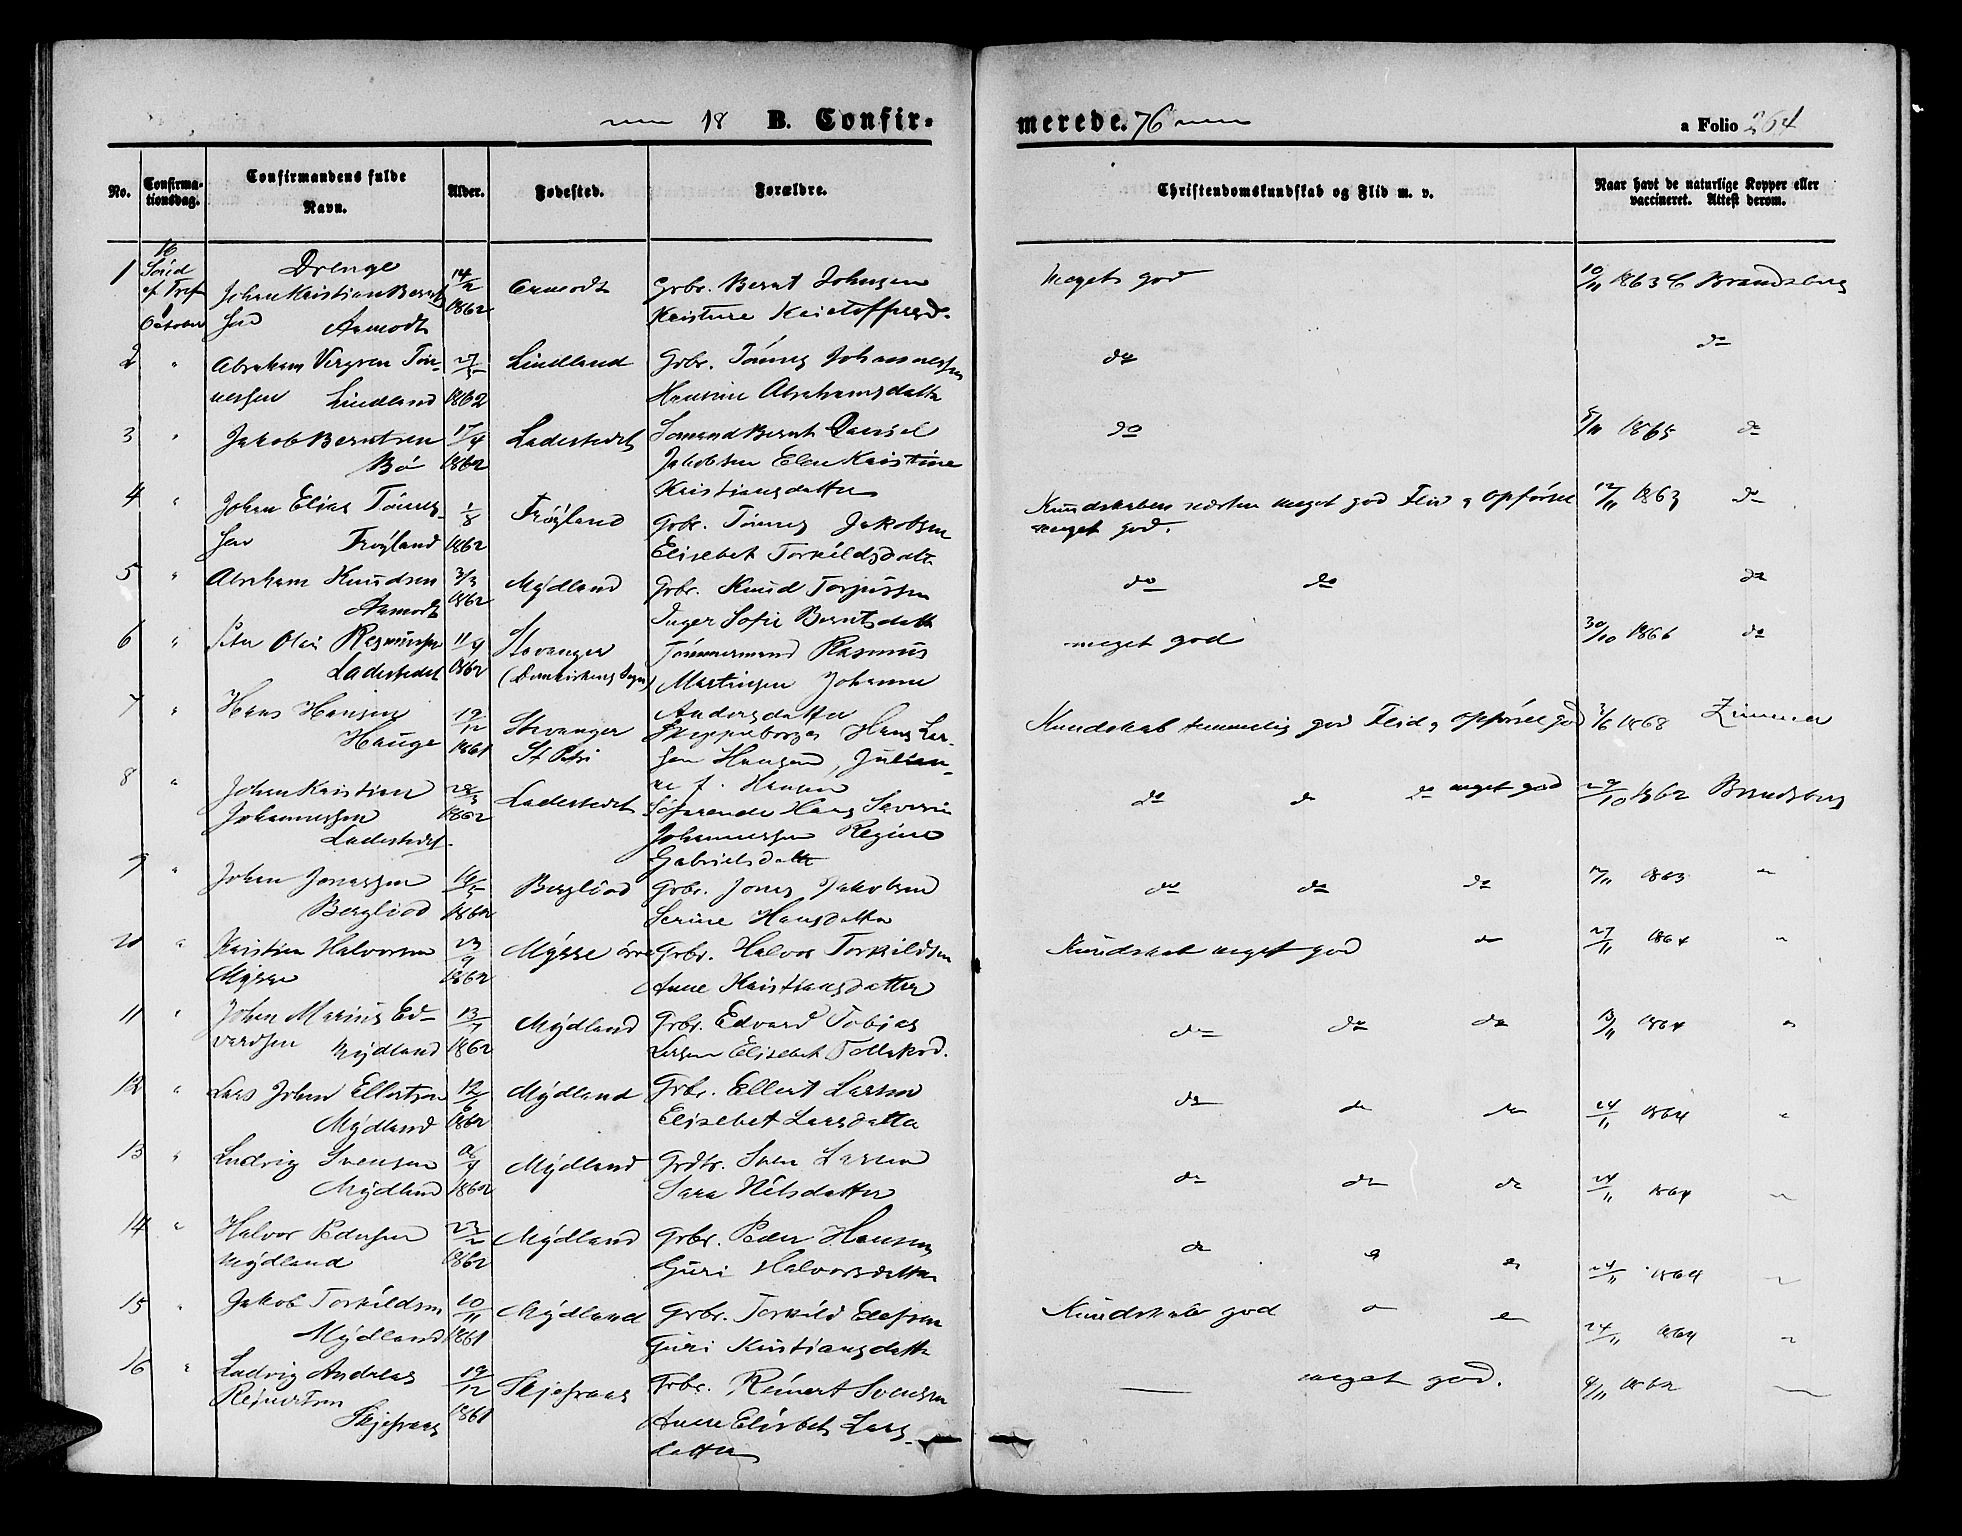 18 B. Confir-
merede. 76
a Folio 264
No.
Confirma-
tionsdag.
Confirmandens fulde
Navn.
Alder.
Fødested.
Forældre.
Christendomskundskab og Flid m. v.
Naar havt de naturlige Kopper eller
vaccineret. Attest derom.
Drenge
1 16 Sønd ef Tref October
Johan Kristian Bernt
sen Aamodt
14/2 1862
Aamodt
Grbr. Bernt Johnsen
Meget god
10/11 1863 C Brandsberg
2 "
Abraham Vergren Tøn-
nessen Lindland
1862
Lindland
Grbr. Tønnes Johannessen
Abrahamsdatter
do
do
3 "
Jakob Berntsen
Bö
17/4 1862
Ladestedet
Sømand Bernt Daniel
Jakobsen Elen Kristine
Kristiansdatter
do
5/11 1865 do
4 "
Johan Elias Tønnes-
sen Frøyland
1/8 1862
Frøyland
Grbr. Tønnes Jakobsen
Elisebet Torkildsdatt
Kundskaben næsten meget god Flid o Opførsel
meget god.
12/11 1863 do
5 "
Abraham Knudsen
Aamodt
3/3 1862
Mýdland
Grbr. Knud Torjussen
Inger Sofie Berntsdatt
do do
do
6 "
Peter Olai Rasmussen
Ladestedet
11/4 1862
Stavanger
(Domkirkens Sogn)
Tømmermand Rasmus
Martinsen Johanne
Andersdatter
meget god
30/10 1866 do
7 "
Hans Hansen
Hauge
19/12 1861
Stavanger
St Petri
Skipperborger Hans Lar-
sen Hansen, Julian-
ne f. Hansen
Kundskab temmelig god Flid o Opførsel god
3/6 1868 Zimmer
8 "
Johan Kristian
Johannessen
Ladestedet.
28/3 1862
Ladestedet
Søfarende Hans Severin
Johannessen Regine
Gabrielsdatt
do do do meget god
29/10 1862 Brandsberg
9 "
Johan Jonassen
Bergliod
19/5 1862
Bergliod
Grbr. Jonas Jakobsen
Serine Hansdatter
do do do
12/11 1863 "
10 "
Kristian Halvorsen
Mýsse
23/9 1862
Mýsse øvre
Grbr. Halvor Torkildsen
Anne Kristiansdatter
Kundskab meget god do
27/11 1864 "
11 "
Johan Marius Ed-
vardsen Mýdland
13/7 1862
Mýdland
Grbr. Edvard Tobias
Larsen Elisebet Tollaksd.
do do do
13/11 1864 "
12 "
Lars Johan Ellertsen
Mýdland
12/6 1862
Mýdland
Grbr. Ellert Larsen
Elisebet Larsdatter
do do do
24/11 1864 "
13 "
Ludvig Svensen
Mýdland
1862
Mýdland
Grbr. Sven Larsen
Sara Nilsdatter
do do do
24/11 1864 "
14 "
Halvor Pedersen
Mýdland
23/2 1862
Mýdland
Grbr. Peder Hansen
Guri Halvorsdatter
do " "
24/11 1864 "
15 "
Jakob Torkildsen
Mýdland
10/11 1861
Mýdland
Grbr. Torkild Elefsen
Guri Kristiansdatte
Kundskab god " "
24/11 1864 "
16 "
Ludvig Andreas
Reinertsen
Skjefraas
19/12 1861
Skjefraas
Grbr. Reinert Svensen
Anne Elisbet Lars-
datter
— meget god.
9/11 1862 "